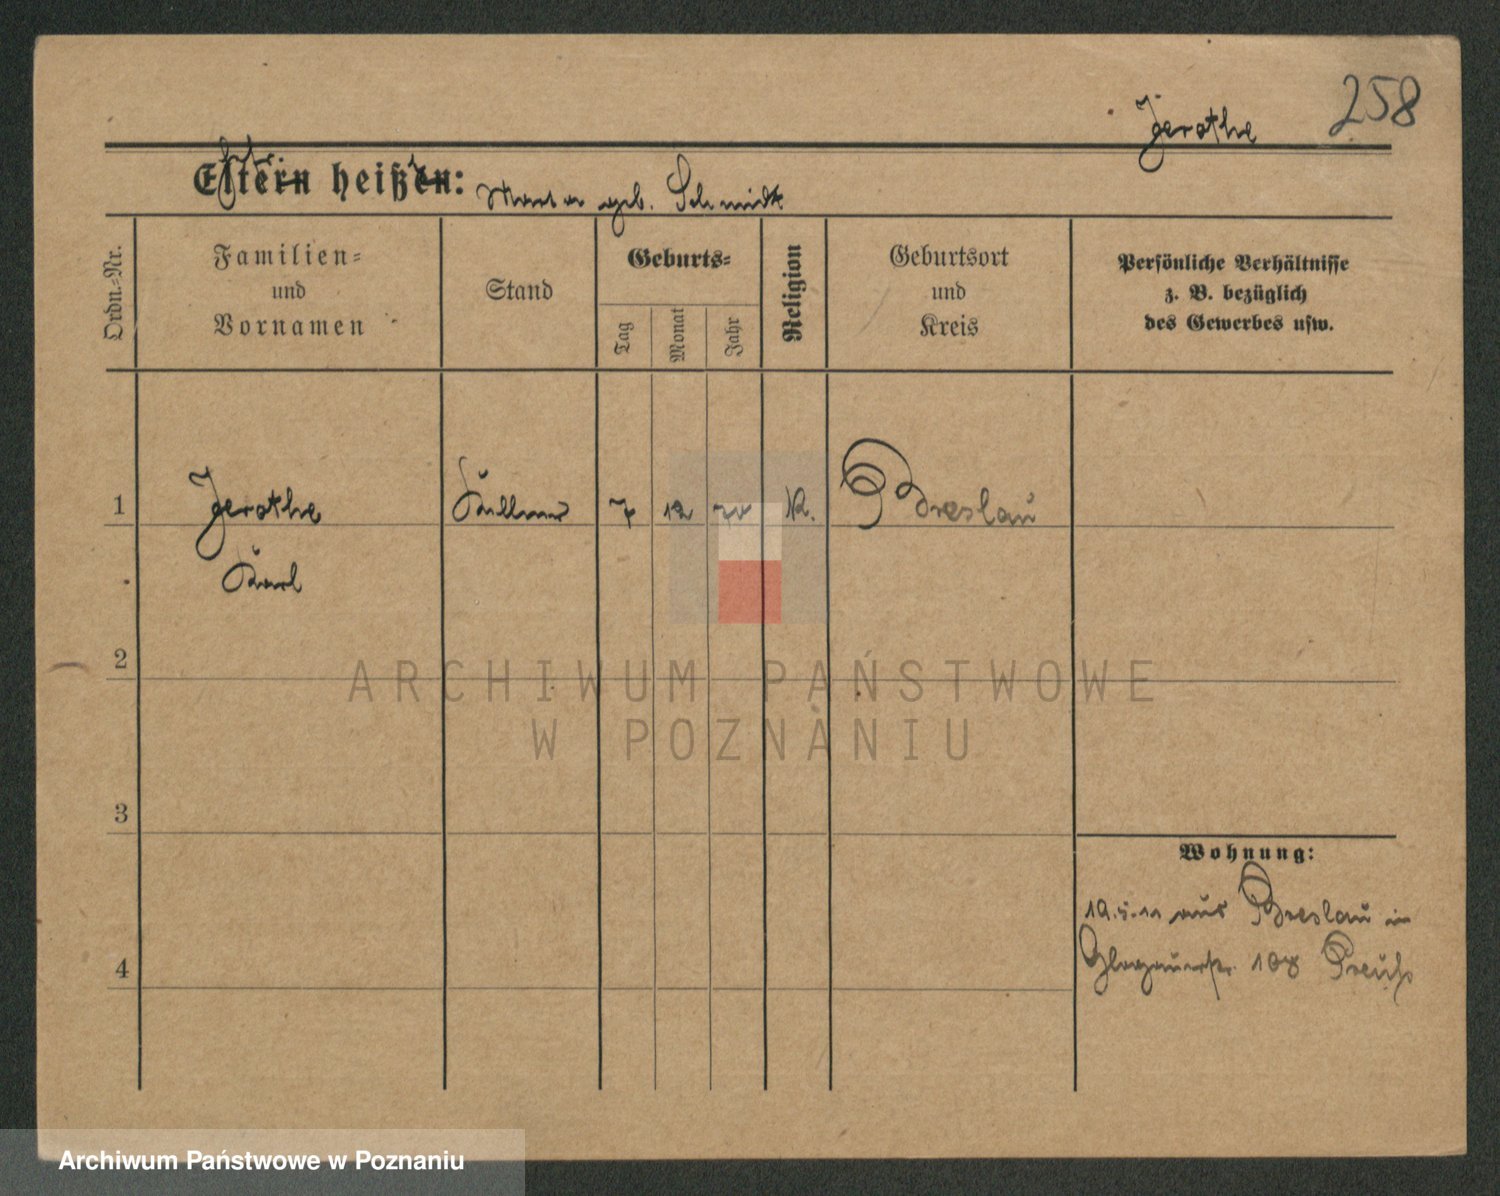 258
Jerothe
Eltern heißen: Martha geb. Schmidt
Ordn.-Nr.
Familien-
und
Vornamen
Stand
Geburts-
Tag
Monat
Jahr
Religion
Geburtsort
und
Kreis
Persönliche Verhältnisse
z. B. bezüglich
des Gewerbes usw.
1 Jerothe Kellner 7 12 K. Breslau
Karl
2
ARCHIWUM PAŃSTWOWE
W POZNANIU
3
Wohnung:
aus Breslau in
Glogauerstr. 108 Preuß
4
Archiwum Państwowe w Poznaniu